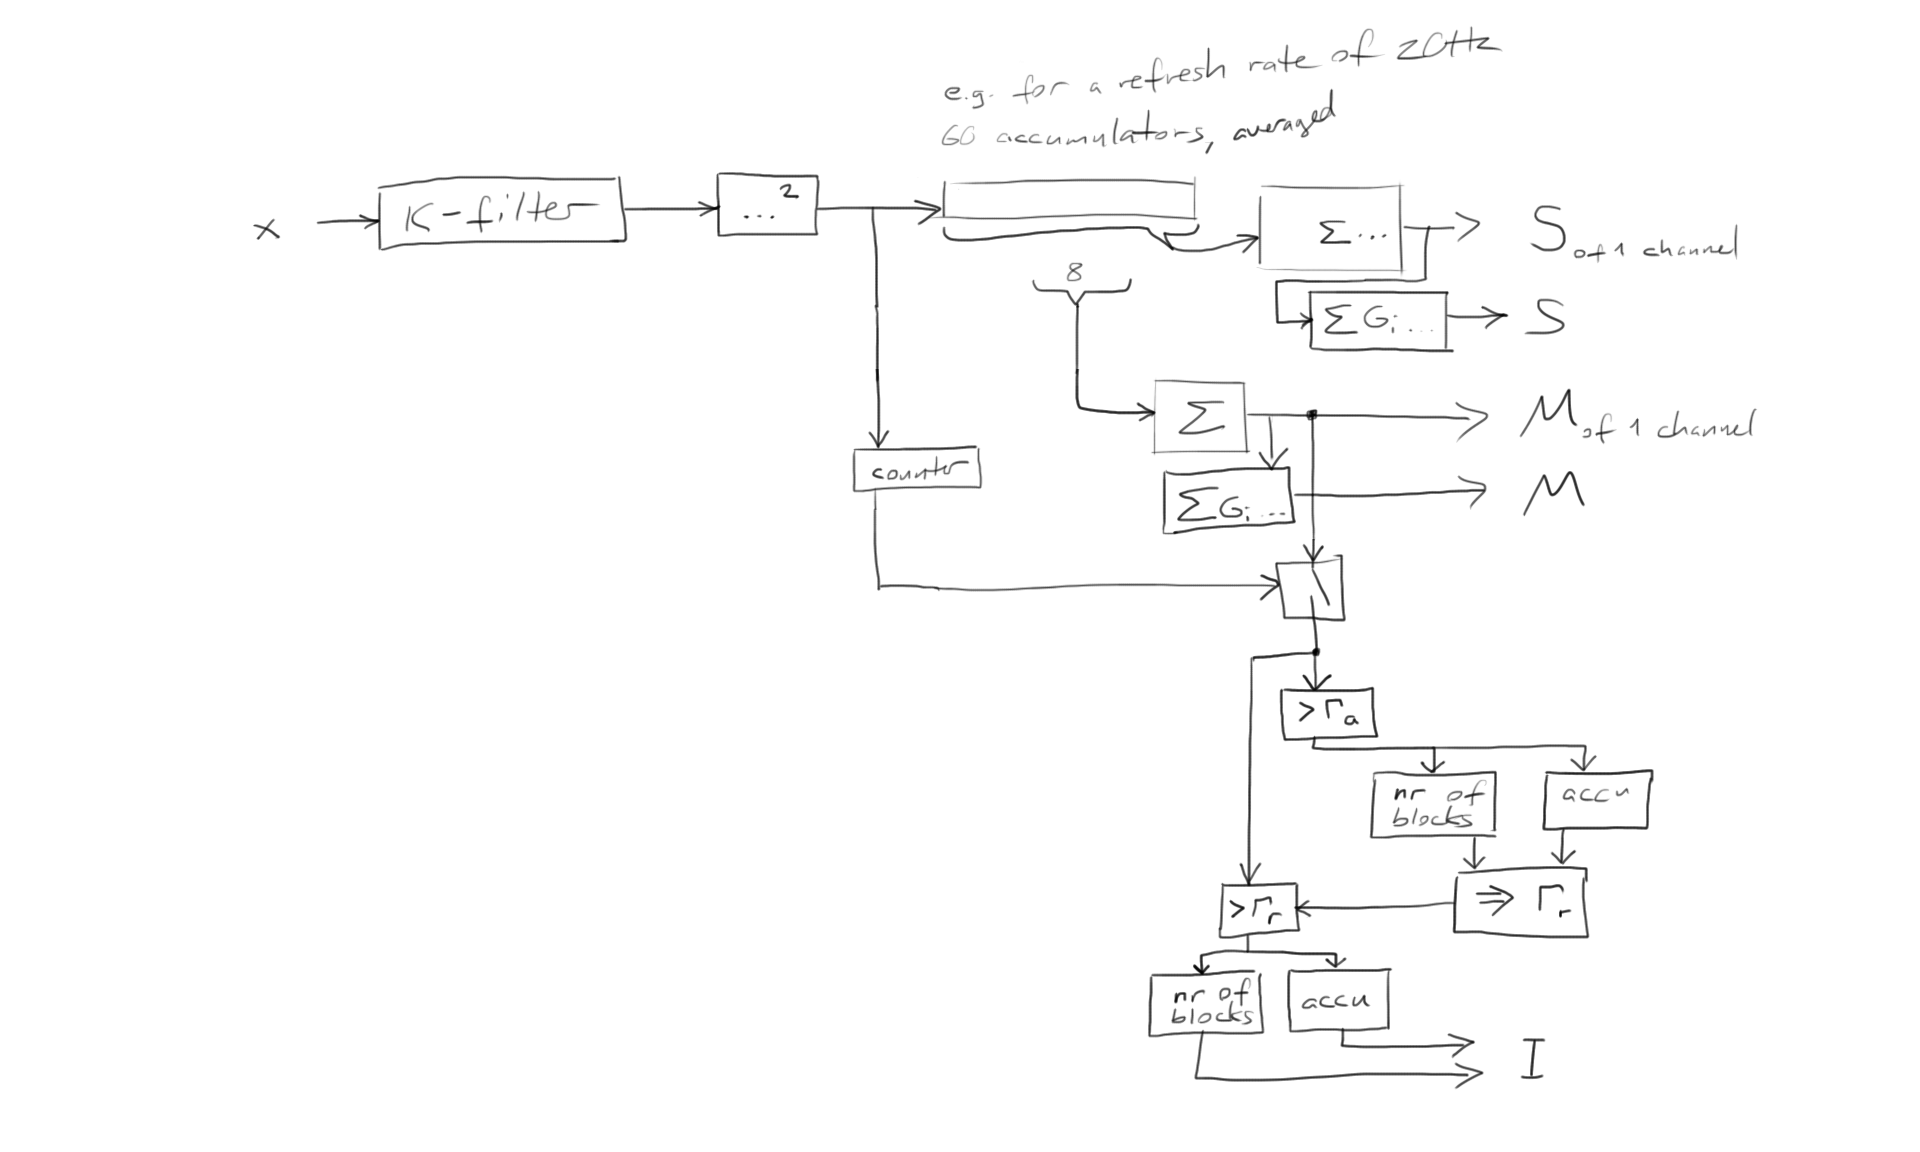 e.g. for a refresh rate of 20Hz
60 accumulators, averaged
x
K-filter
...²
Σ...
S of 1 channel
8
ΣGᵢ...
S
Σ
M of 1 channel
counter
ΣGᵢ...
M
>Γₐ
nr of
blocks
accu
>Γᵣ
⇒ Γᵣ
nr of
blocks
accu
I